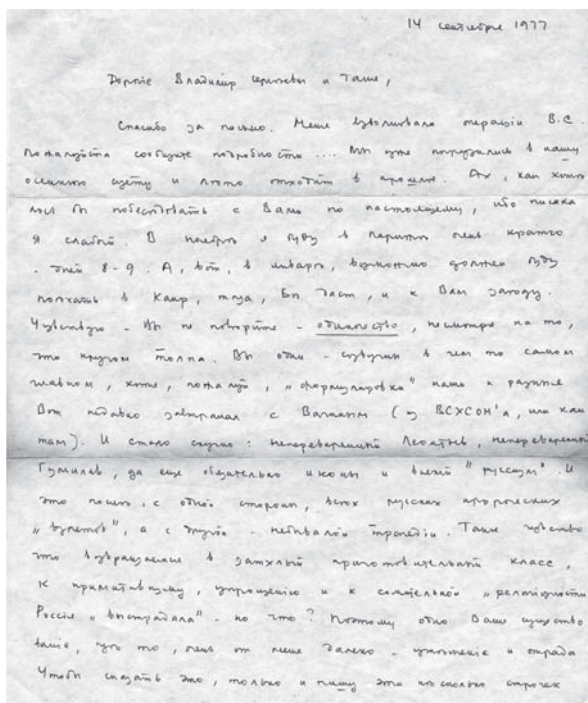 14 сентября 1977
Дорогие Владимир Сергеевич и Таня,
Спасибо за письмо. Меня взволновала операция В.С.
Пожалуйста сообщите подробности.... Мы уже погрузились в нашу
осеннюю суету и лето отходит в прошлое. Ах, как хотелось
бы побеседовать с Вами по настоящему, ибо писака
я слабый. В ноябре я буду в Париже очень кратко
- дней 8-9. А, вот, в январе, возможно должен буду
поехать в Каир, тогда, Бог даст, и к Вам заеду.
Чувствую - Вы не поверите - одиночество, несмотря на то,
что кругом толпа. Вы одни - созвучны в чем то самом
главном, хотя, пожалуй, „формулировка" наша и разные
Вот недавно завтракал с Вагиным (из ВСХСОН'а, или как
там). И стало скучно: непереваренный Леонтьев, непереваренный
Гумилев, да еще обязательно иконы и всякий "руссизм". И
это после, с одной стороны, всех русских пророческих
„взлетов", а с другой - небывалой трагедии. Такое чувство
что возвращаешься в затхлый приготовительный класс,
к примитивизму, упрощению и к сомнительной „религиозности
Россия „выстрадала" - но что? Поэтому одно Ваше существо
вание, где то, очень от меня далеко - утешение и отрада
Чтобы сказать это, только и пишу эти несколько строчек